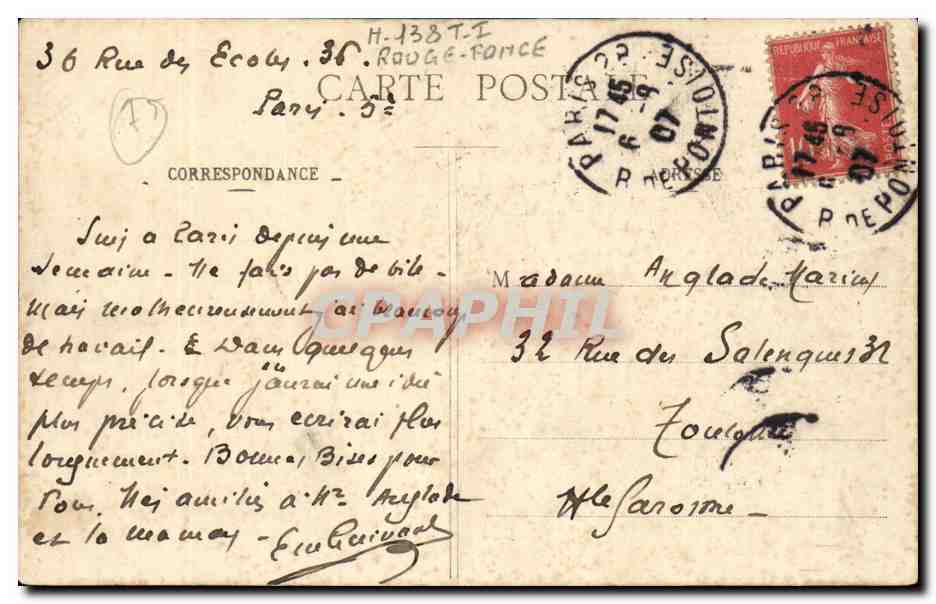 36 Rue des Ecoles. 36.
Paris. 5e
H-138 T-I
ROUGE-FONCE
CARTE POSTALE
75
PARIS 22
17 45
6 -9
07
R. DE PONTOISE
REPUBLIQUE FRANÇAISE
PARIS 22
17 45
6 -9
07
R. DE PONTOISE
CORRESPONDANCE
ADRESSE
Suis à Paris depuis une
semaine - Ne fais pas de bile -
Mais malheureusement j'ai beaucoup
de travail. Dans quelques
temps, lorsque j'aurai une idée
plus précise, vous écrirai plus
longuement. Bonnes Bises pour
Tous. Mes amitiés à Mr Anglade
et la maman -
Madame Anglade Marius
32 Rue des Salenques 32
Toulouse
Hte Garonne -
CPAPHIL